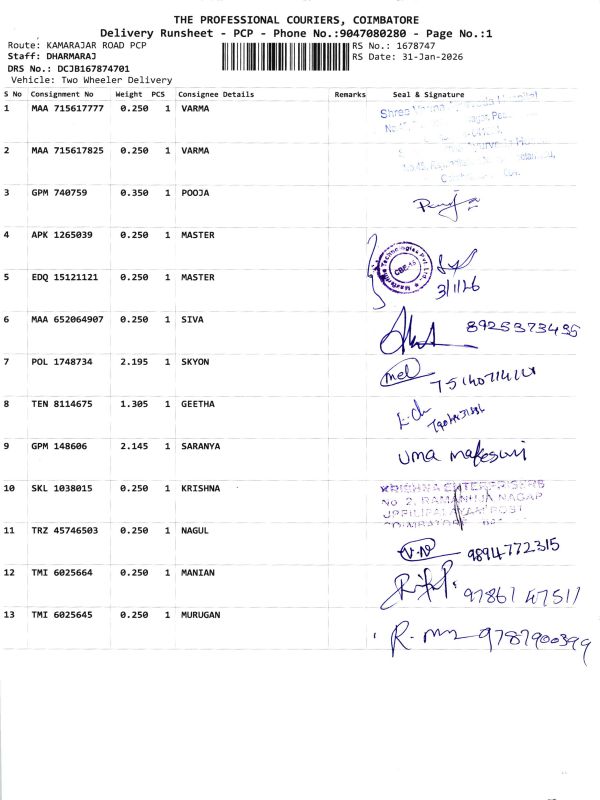 THE PROFESSIONAL COURIERS, COIMBATORE
Delivery Runsheet - PCP - Phone No.:9047080280 - Page No.:1
Route: KAMARAJAR ROAD PCP RS No.: 1678747
Staff: DHARMARAJ RS Date: 31-Jan-2026
DRS No.: DCJB167874701
Vehicle: Two Wheeler Delivery
S No Consignment No Weight PCS Consignee Details Remarks Seal & Signature
1 MAA 715617777 0.250 1 VARMA
2 MAA 715617825 0.250 1 VARMA
3 GPM 740759 0.350 1 POOJA
4 APK 1265039 0.250 1 MASTER
5 EDQ 15121121 0.250 1 MASTER 3/1/26
6 MAA 652064907 0.250 1 SIVA 8925373435
7 POL 1748734 2.195 1 SKYON
8 TEN 8114675 1.305 1 GEETHA
9 GPM 148606 2.145 1 SARANYA uma makeswri
10 SKL 1038015 0.250 1 KRISHNA KRISHNA ENTERPRISERS
No 2, RAMANUJA NAGAR
UPPILIPALAYAM POST
COIMBATORE
11 TRZ 45746503 0.250 1 NAGUL V.N 9894772315
12 TMI 6025664 0.250 1 MANIAN 97867 47511
13 TMI 6025645 0.250 1 MURUGAN 9787900399